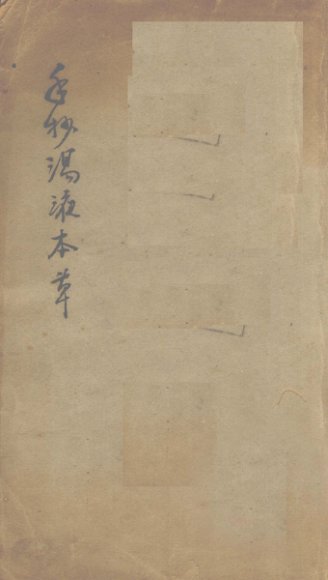 手抄湯液本草